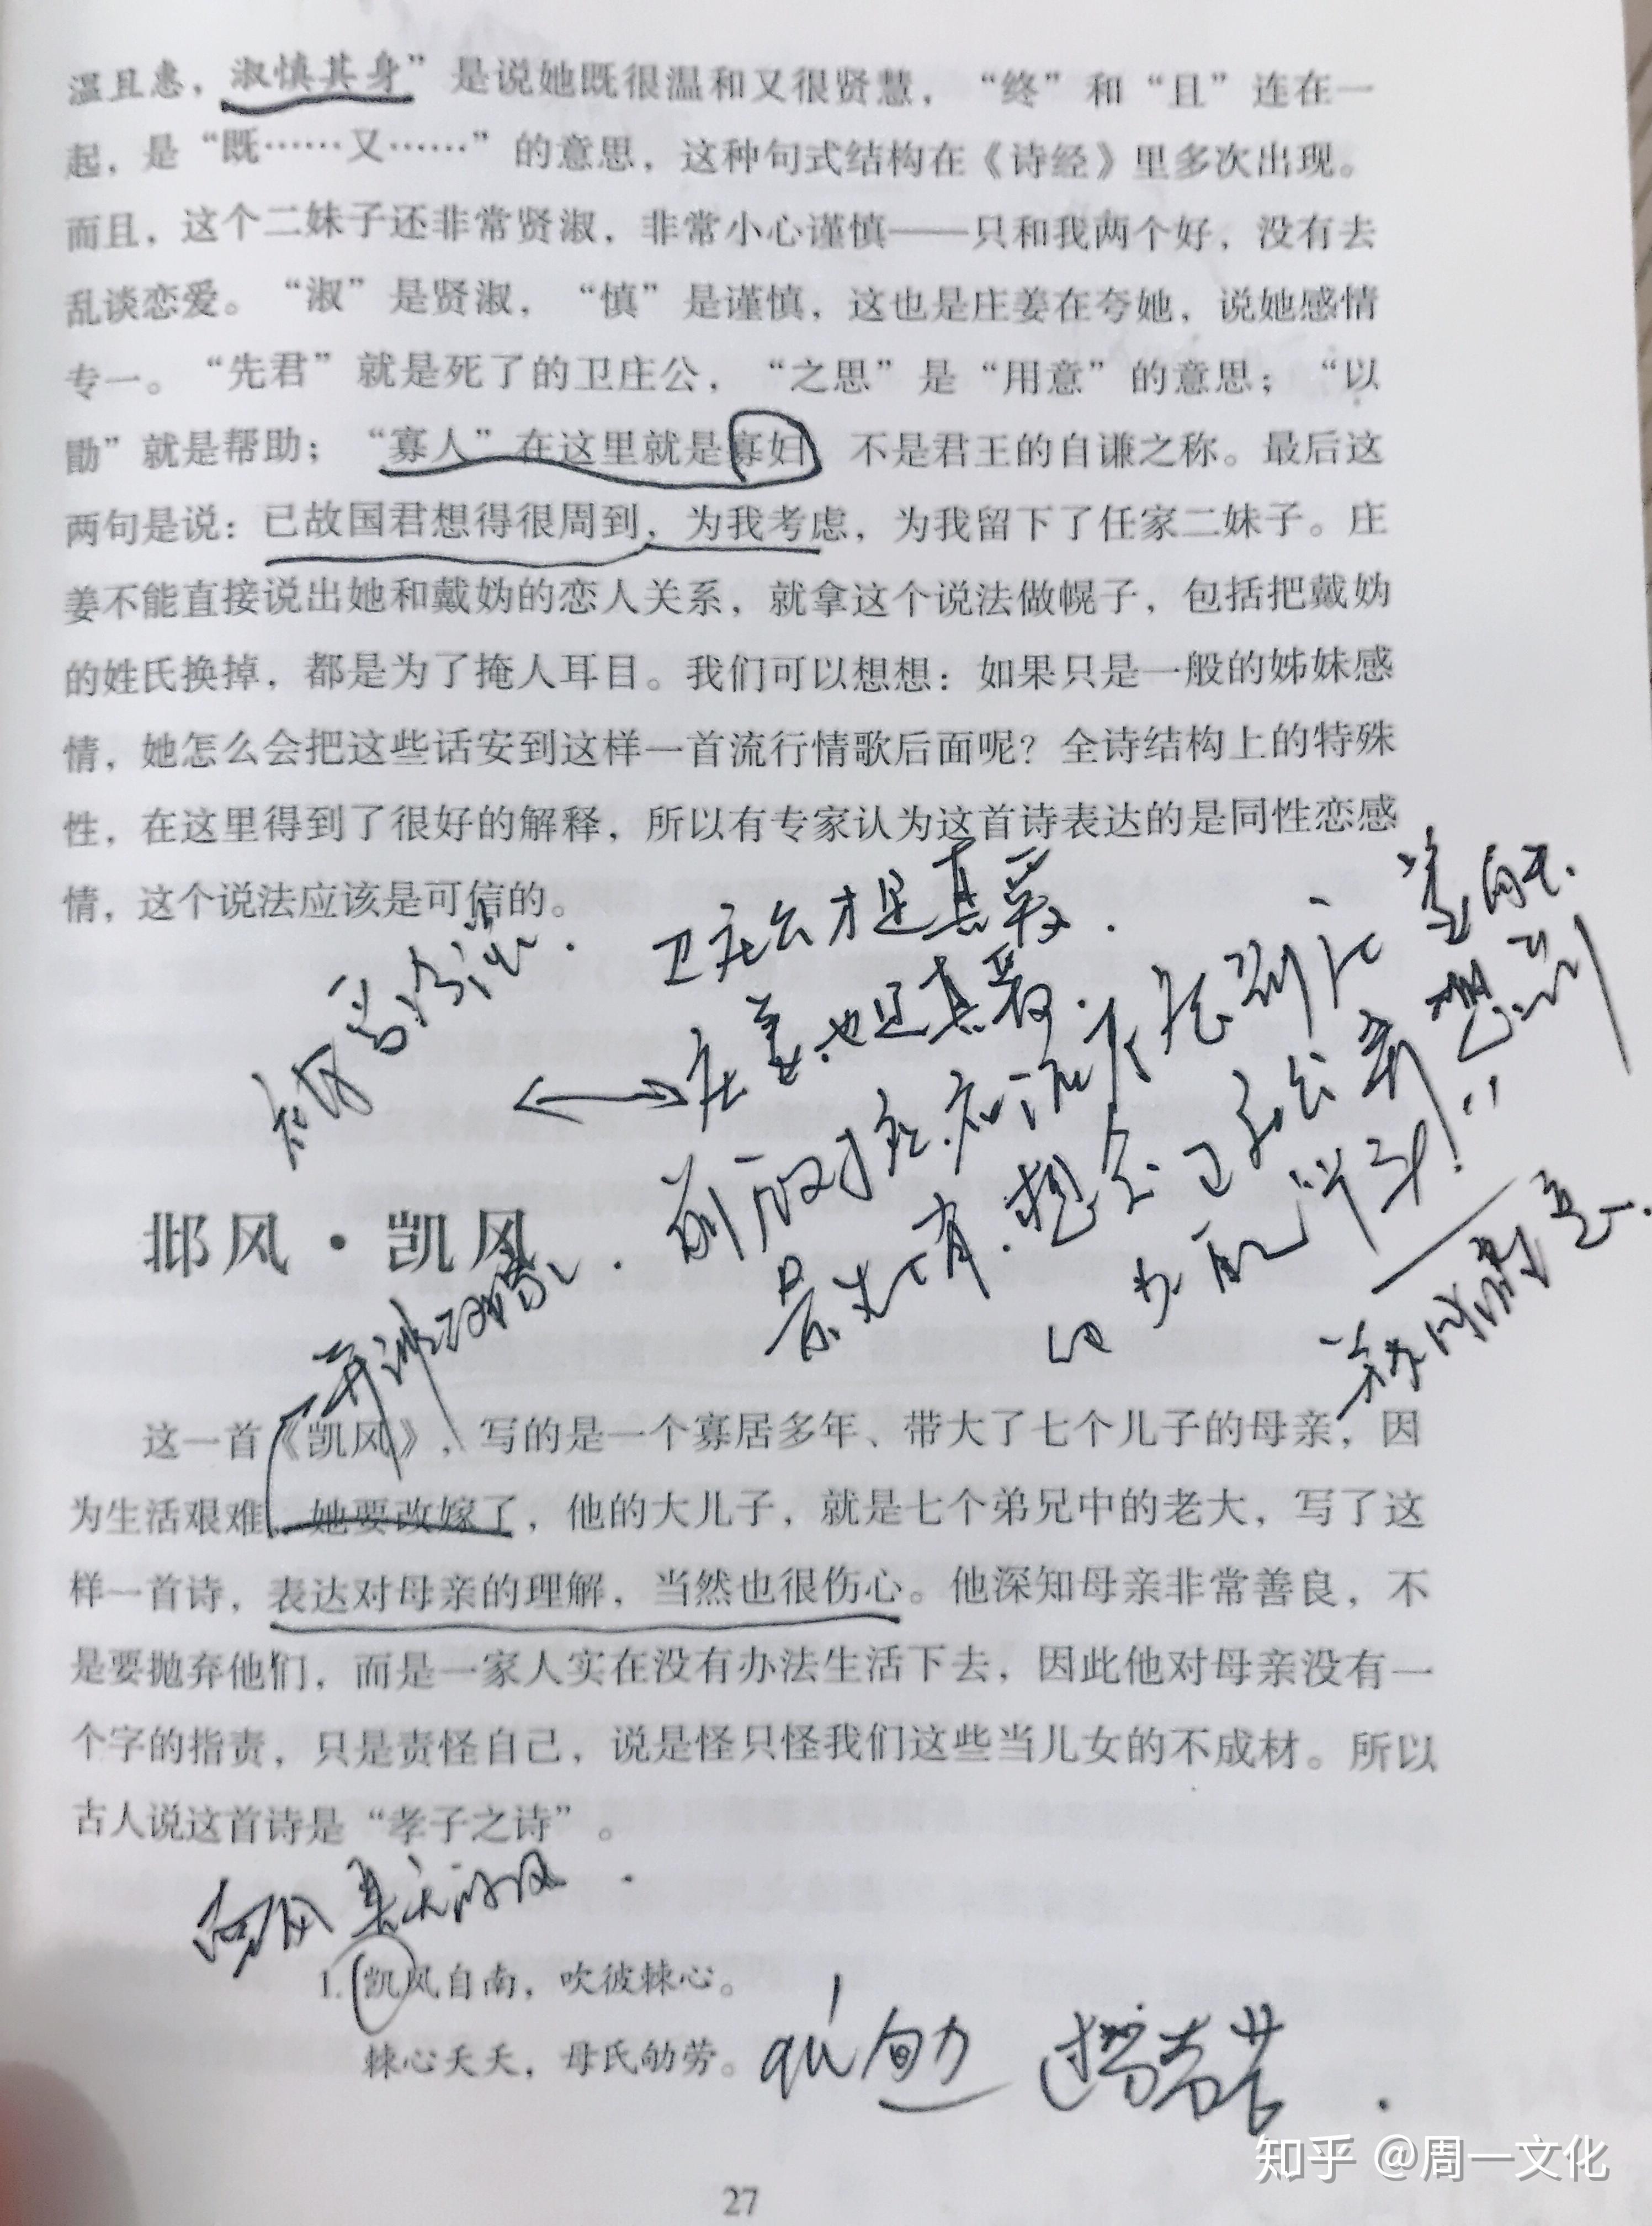 温且惠，淑慎其身”是说她既很温和又很贤慧，“终”和“且”连在一
起，是“既……又……”的意思，这种句式结构在《诗经》里多次出现。
而且，这个二妹子还非常贤淑，非常小心谨慎——只和我两个好，没有去
乱谈恋爱。“淑”是贤淑，“慎”是谨慎，这也是庄姜在夸她，说她感情
专一。“先君”就是死了的卫庄公，“之思”是“用意”的意思；“以
勖”就是帮助；“寡人”在这里就是寡妇，不是君王的自谦之称。最后这
两句是说：已故国君想得很周到，为我考虑，为我留下了任家二妹子。庄
姜不能直接说出她和戴妫的恋人关系，就拿这个说法做幌子，包括把戴妫
的姓氏换掉，都是为了掩人耳目。我们可以想想：如果只是一般的姊妹感
情，她怎么会把这些话安到这样一首流行情歌后面呢？全诗结构上的特殊
性，在这里得到了很好的解释，所以有专家认为这首诗表达的是同性恋感
情，这个说法应该是可信的。
卫庄公才是真爱.
庄姜也是真爱.
邶风·凯风
这一首《凯风》，写的是一个寡居多年、带大了七个儿子的母亲，因
为生活艰难，她要改嫁了，他的大儿子，就是七个弟兄中的老大，写了这
样一首诗，表达对母亲的理解，当然也很伤心。他深知母亲非常善良，不
是要抛弃他们，而是一家人实在没有办法生活下去，因此他对母亲没有一
个字的指责，只是责怪自己，说是怪只怪我们这些当儿女的不成材。所以
古人说这首诗是“孝子之诗”。
1. 凯风自南，吹彼棘心。
棘心夭夭，母氏劬劳。
qú
劳苦
知乎 @周一文化
27